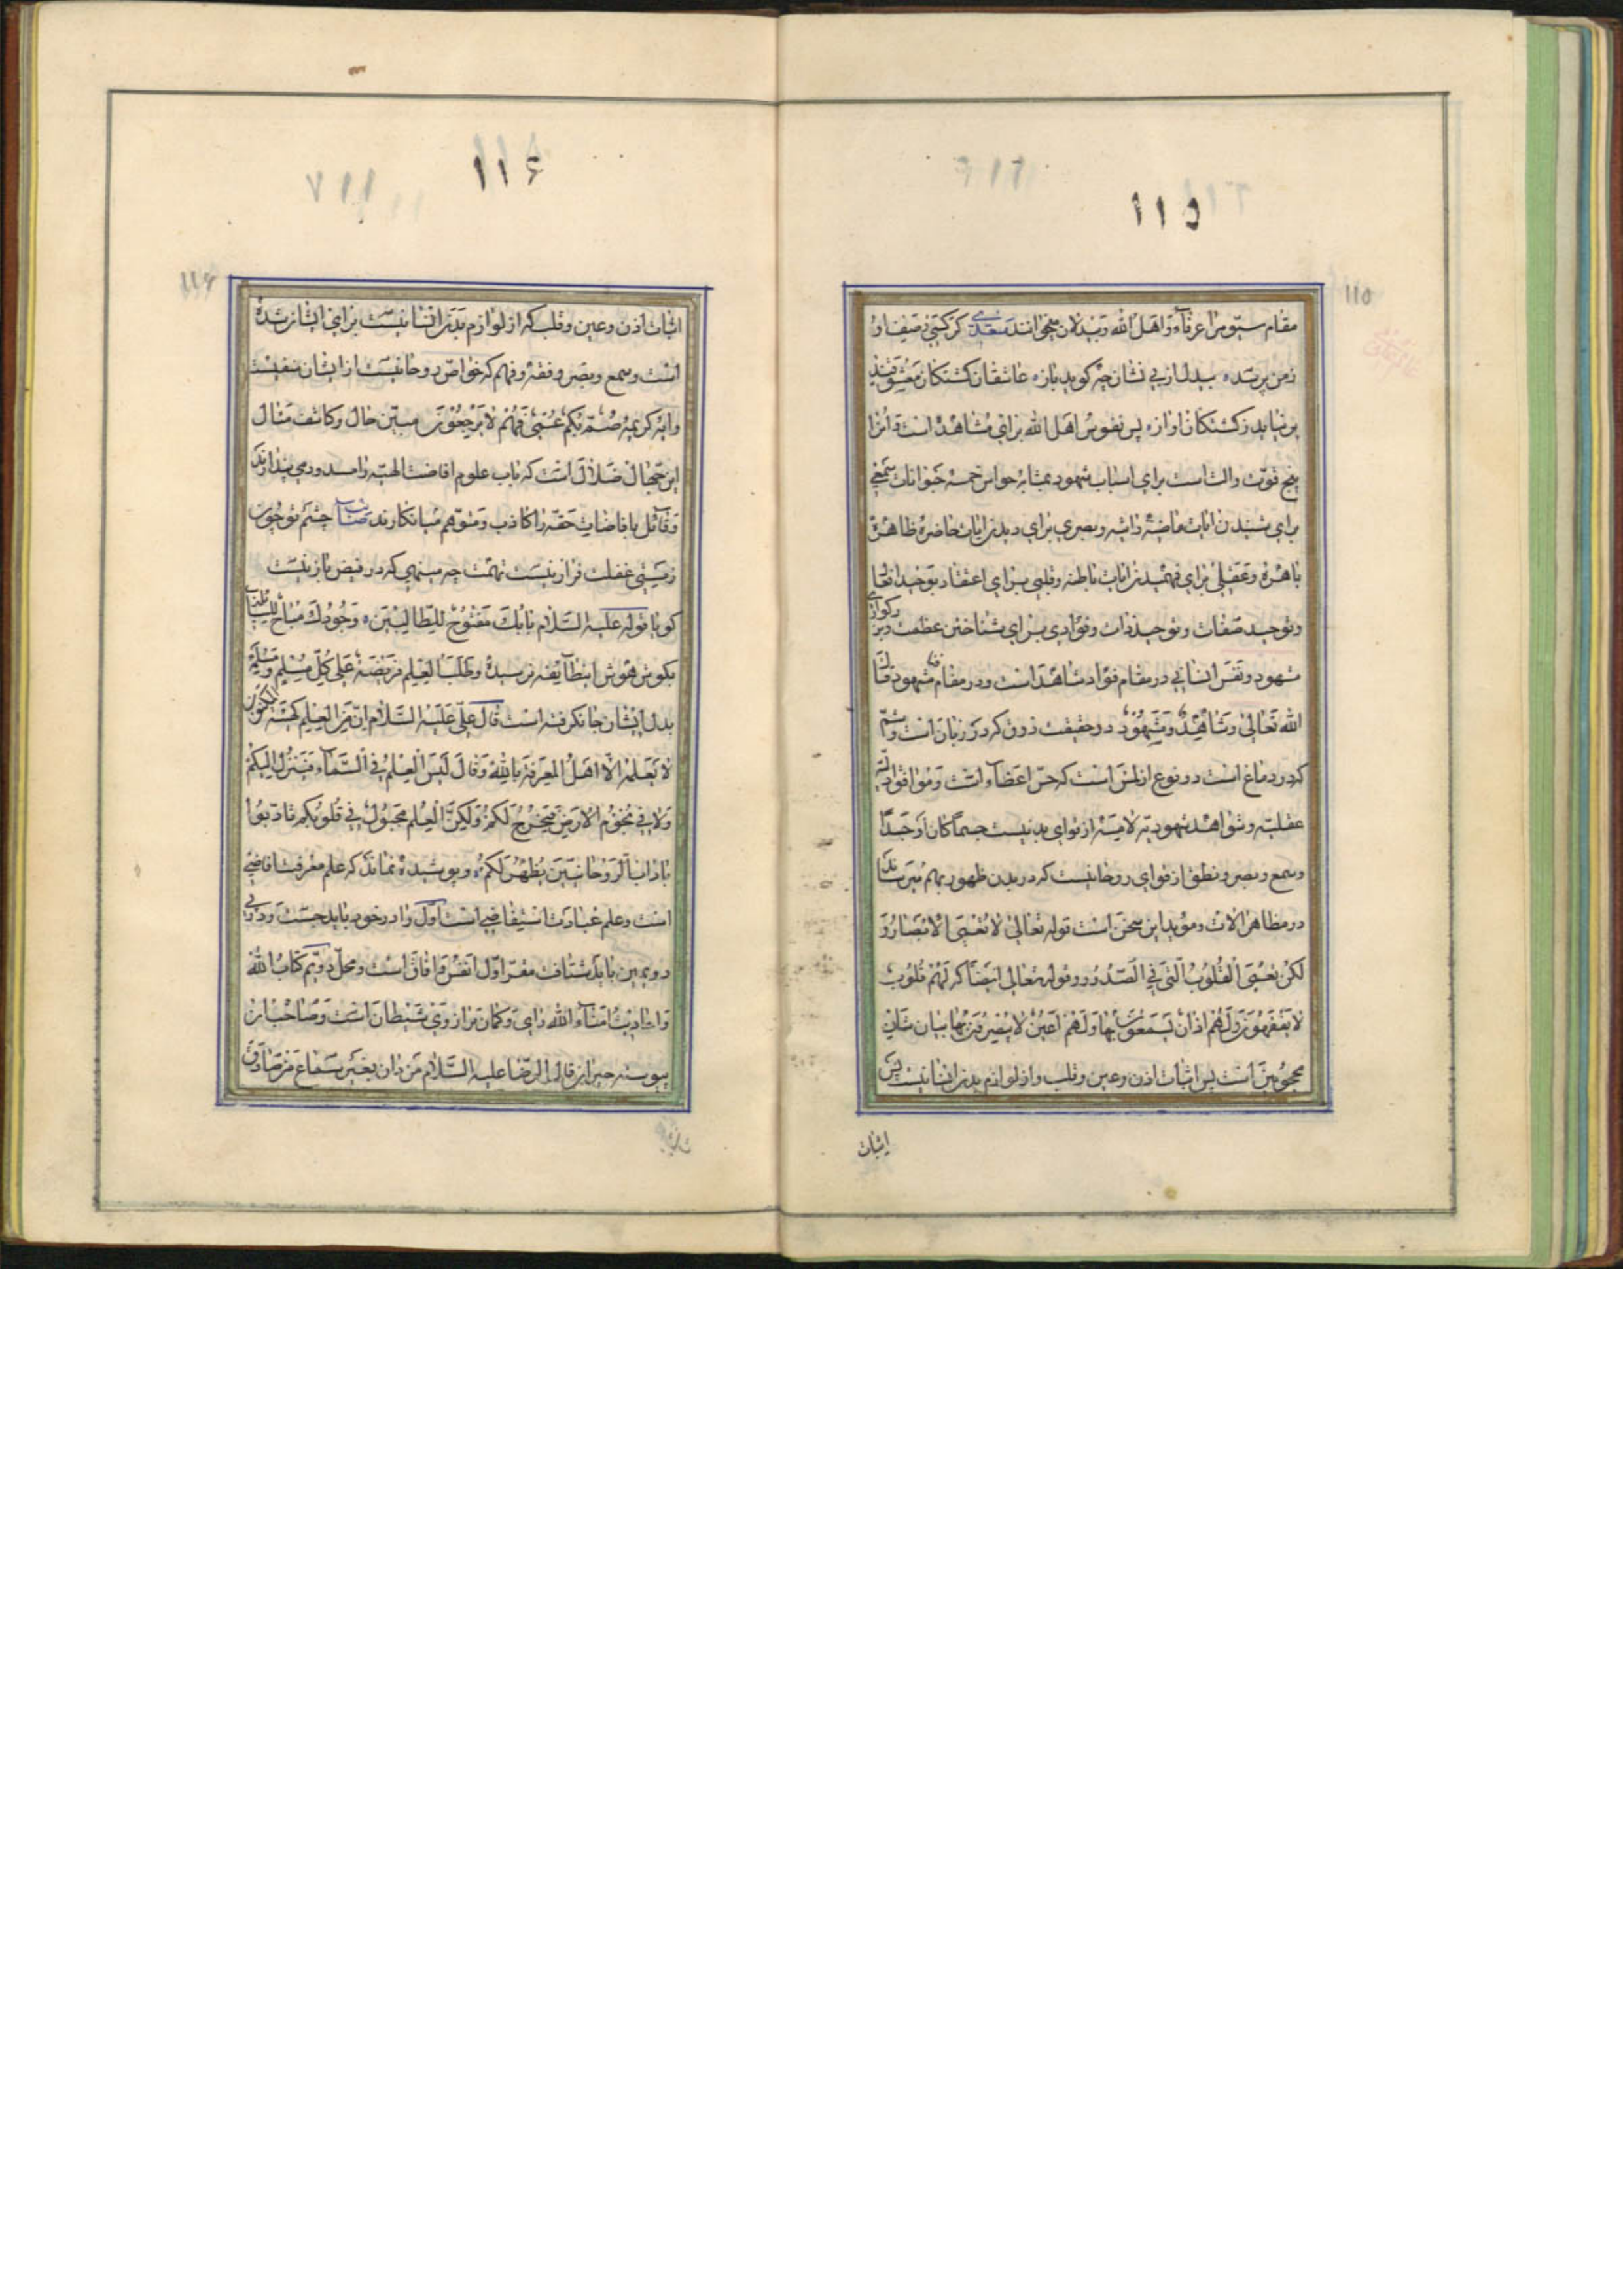 ۱۱۵
115
مقام سیّوم را عرفاء و اهل الله و بیدلان میخوانند سعدی گر کسی وصف او
ز من پرسد ٭ بیدل از بی نشان چه گوید باز ٭ عاشقان کشتکان معشوقند
بر نیاید ز کشتکان اواز ٭ پس نفوس اهل الله برای مشاهد است و انرا
پنج قوّت والت است برای اسباب شهود بمثابه حواس خمسه حیوانات سمعی
برای شنیدن ایات ماضیه داثیه و بصری برای دیدن ایات حاضره ظاهره
باهره و عقلی برای فهمیدن ایات باطنه و قلبی برای اعتقاد توحید افعا
و توحید صفات و توحید ذات و فؤادی برای شناختن عظمت و بزرکواری
شهود و نفس انسانی در مقام فؤاد شاهد است و در مقام فنا مشهود قال
الله تعالی و شاهد و مشهود در حقیقت ذوق که در زبان است و شم
که در دماغ است دو نوع از لمس است که حس اعضاء است و موافق والته
عقلیّه و شواهد شهودیّه لامسه از قوای بدنیست جسما کان او جسدا
و سمع و بصر و نطق از قوای روحانیست که در بدن ظهور بهم میرساند
در مظاهر الات و موید این سخن است قوله تعالی لا تعمی الابصار و
لکن تعمی القلوب التی فی الصدور و قوله تعالی ایضا که لهم قلوب
لا یفقهون و لهم اذان لا یسمعون بها و لهم اعین لا یبصرون بها بیان شان
محجوبین است پس اثبات اذن و عین و قلب و از لوازم بدن انسانیست پس
اثبات
۱۱۶
116
اثبات اذن و عین و قلب که از لوازم بدن انسانیست برای ایشان شده
است و سمع و بصر و فقه و فهم که خواص روحانیست از ایشان منفیست
و ایه کریمه صم بکم عمی فهم لا یرجعون مبین حال و کاشف مثال
این جهال ضلال است که باب علوم افاضت الهیه را مسدود می پندارند
و قائل بافاضات حقه را کاذب و متوهم می انکارند صائب چشم تو چون
ز مستی غفلت فراز نیست تهمت چه مینهی که در فیض باز نیست
کویا قوله علیه السلام بابک مفتوح للطالبین ٭ و جودک مباح للسائلین
بکوش هوش این طایفه نرسیده و طلب العلم فریضة علی کل مسلم و مسلمة
بدل ایشان جا نکرفته است قال علی علیه السلام ان من العلم کهیئة المکنون
لا یعلمه الا اهل المعرفة بالله و قال لیس العلم فی السماء فینزل الیکم
و لا فی تخوم الارض فیخرج لکم و لکن العلم مجبول فی قلوبکم تادبوا
باداب الروحانیین یظهر لکم ٭ و پوشیده نماند که علم معرفت افاضی
است و علم عبادت استیفاضی است اول را در خود باید جست و در پی
دویمین باید شتافت مقر اول انفس و افاق است و محل دویم کتاب الله
و احادیث امناء الله رای و کمان ترازوی شیطان است و صاحب ان
پیوسته حیران قال الرضا علیه السلام من دان بغیر سماع من صادق